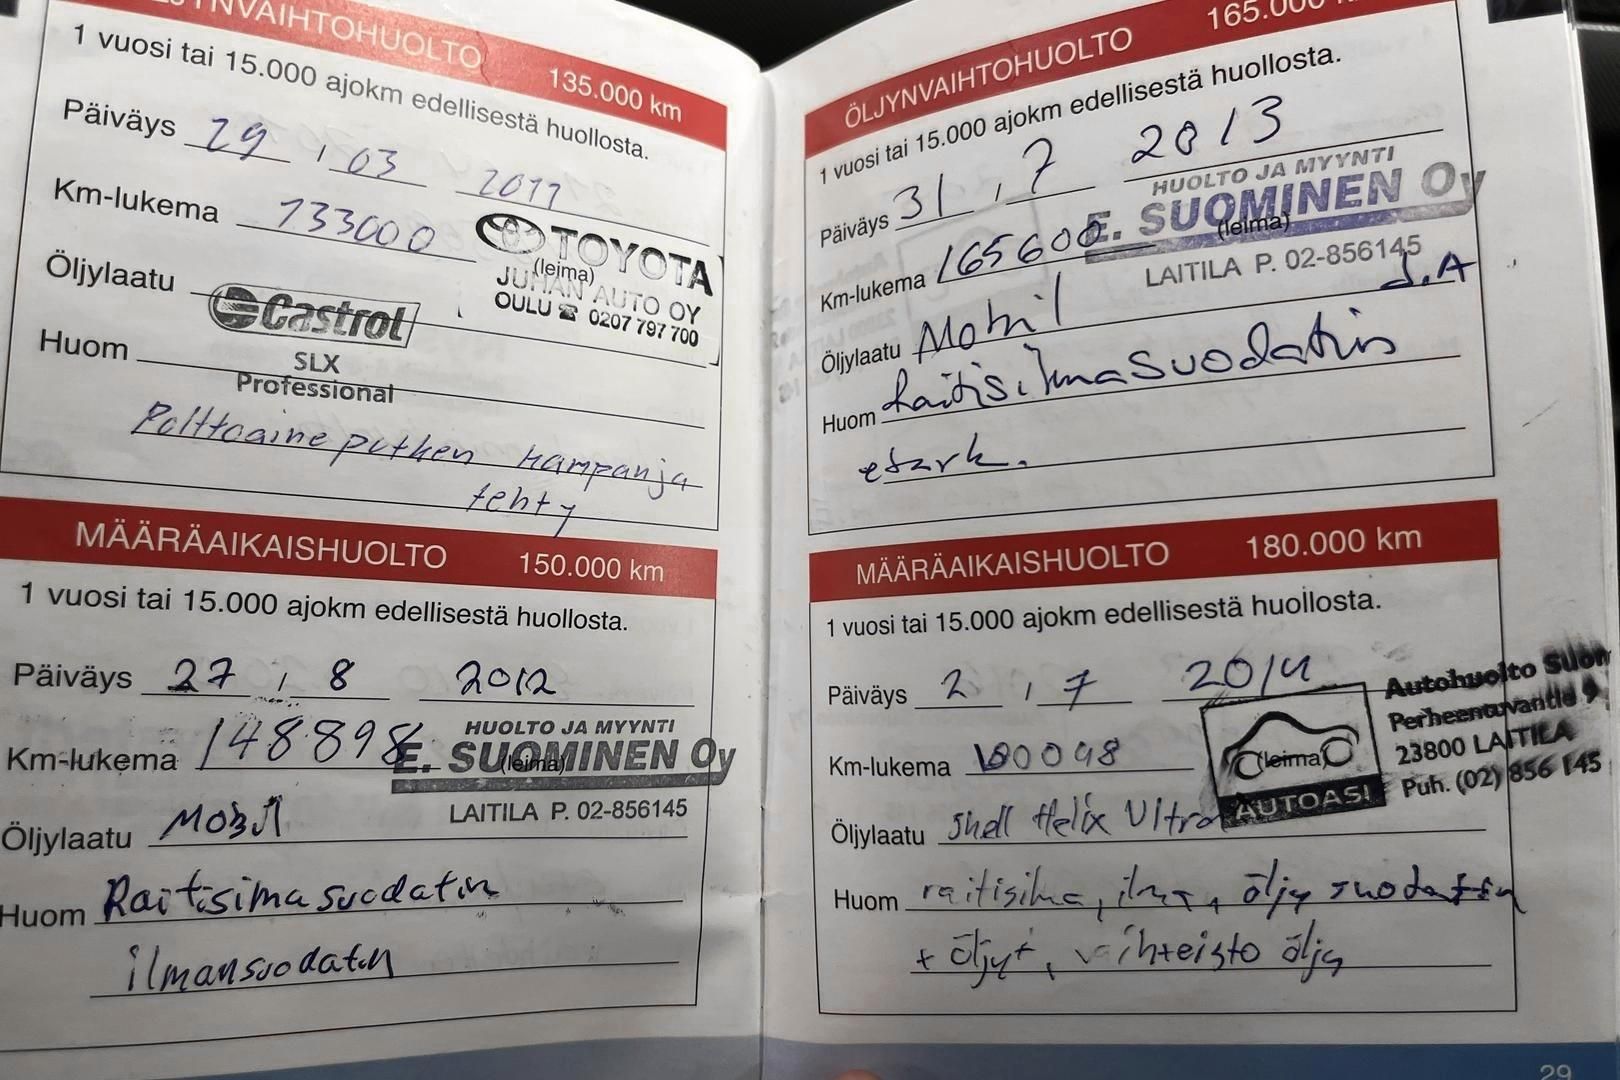 ÖLJYNVAIHTOHUOLTO 135.000 km
1 vuosi tai 15.000 ajokm edellisestä huollosta.
Päiväys 29 , 03 2011
Km-lukema 133000
TOYOTA
(leima)
JUHAN AUTO OY
OULU ☎ 0207 797 700
Öljylaatu Castrol
SLX
Professional
Huom
Polttoaineputken kampanja
tehty
MÄÄRÄAIKAISHUOLTO 150.000 km
1 vuosi tai 15.000 ajokm edellisestä huollosta.
Päiväys 27 , 8 2012
Km-lukema 148898
HUOLTO JA MYYNTI
E. SUOMINEN Oy
(leima)
LAITILA P. 02-856145
Öljylaatu Mobil
Huom Raitisilmasuodatin
ilmansuodatin
ÖLJYNVAIHTOHUOLTO 165.000 km
1 vuosi tai 15.000 ajokm edellisestä huollosta.
Päiväys 31 , 7 2013
HUOLTO JA MYYNTI
E. SUOMINEN Oy
(leima)
LAITILA P. 02-856145
Km-lukema 165600
J.A
Öljylaatu Mobil
Huom Raitisilmasuodatin
MÄÄRÄAIKAISHUOLTO 180.000 km
1 vuosi tai 15.000 ajokm edellisestä huollosta.
Päiväys 2 , 7 2014
Km-lukema 180098
(leima)
AUTOASI
Autohuolto Suom
Perheentuvantie 9
23800 LAITILA
Puh. (02) 856 145
Öljylaatu Shell Helix Ultra
Huom raitisilma, ilma, öljy suodatin
+ öljyt, vaihteisto öljy
29